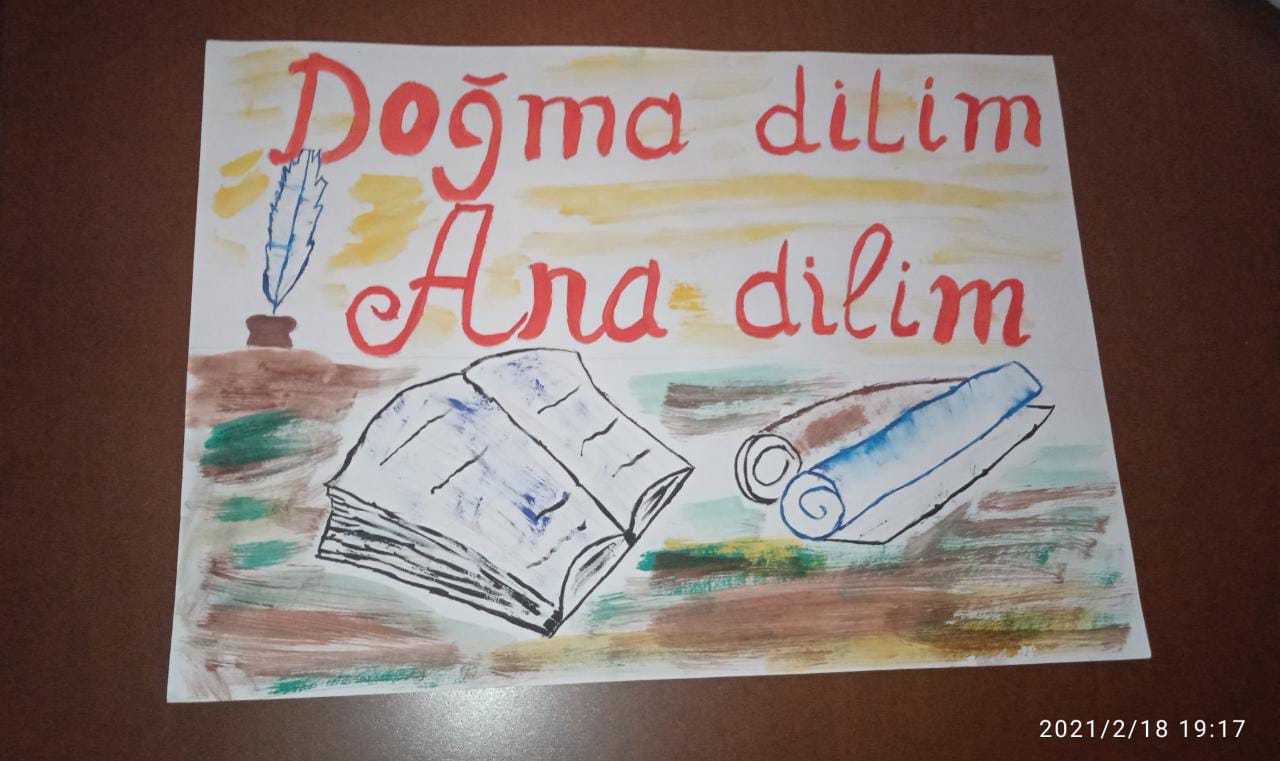 Doğma dilim
Ana dilim
2021/2/18 19:17